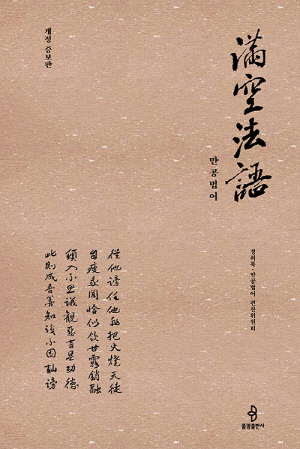 개정 증보판
滿空法語
만공법어
경허록 · 만공법어 편찬위원회
從他謗任他非把火燒天徒
自疲我聞恰似飮甘露銷融
頓入不思議觀惡言是功德
此則成吾善知識不因訕謗
불광출판사